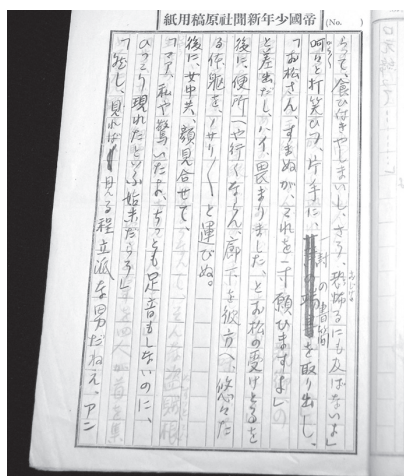 帝國少年新聞社原稿用紙
(No. )
らつて、食ひつきやしまいし、さう、恐怖るにも及ばないよ」
呵々と打笑ひつ、片手に、一封の書簡を取り出し、
「お松さん、すまぬが、これを一寸願ひますよ」
と差出だし、ハイ、畏まりました、とお松の受けとるを
後に、便所へや行くならん、廊下を彼方へ、悠々た
る体躯をノサリ〳〵と運びぬ。
後に、女中共、顔見合せて、
「マア、私や驚いたよ、ちつとも足音もしないのに、
ひよつこり現れたといふ始末だらう」
「然し、見れば見る程立派な男だねえ、アン